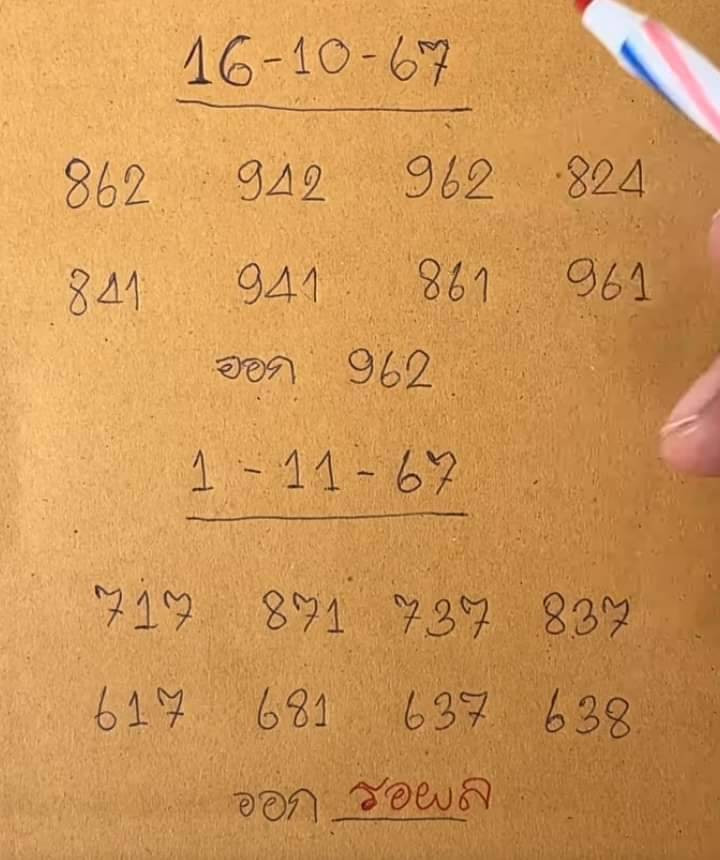 16-10-67
862 942 962 824
841 941 861 961
ออก 962
1-11-67
717 871 737 837
617 681 637 638
ออก รอผล